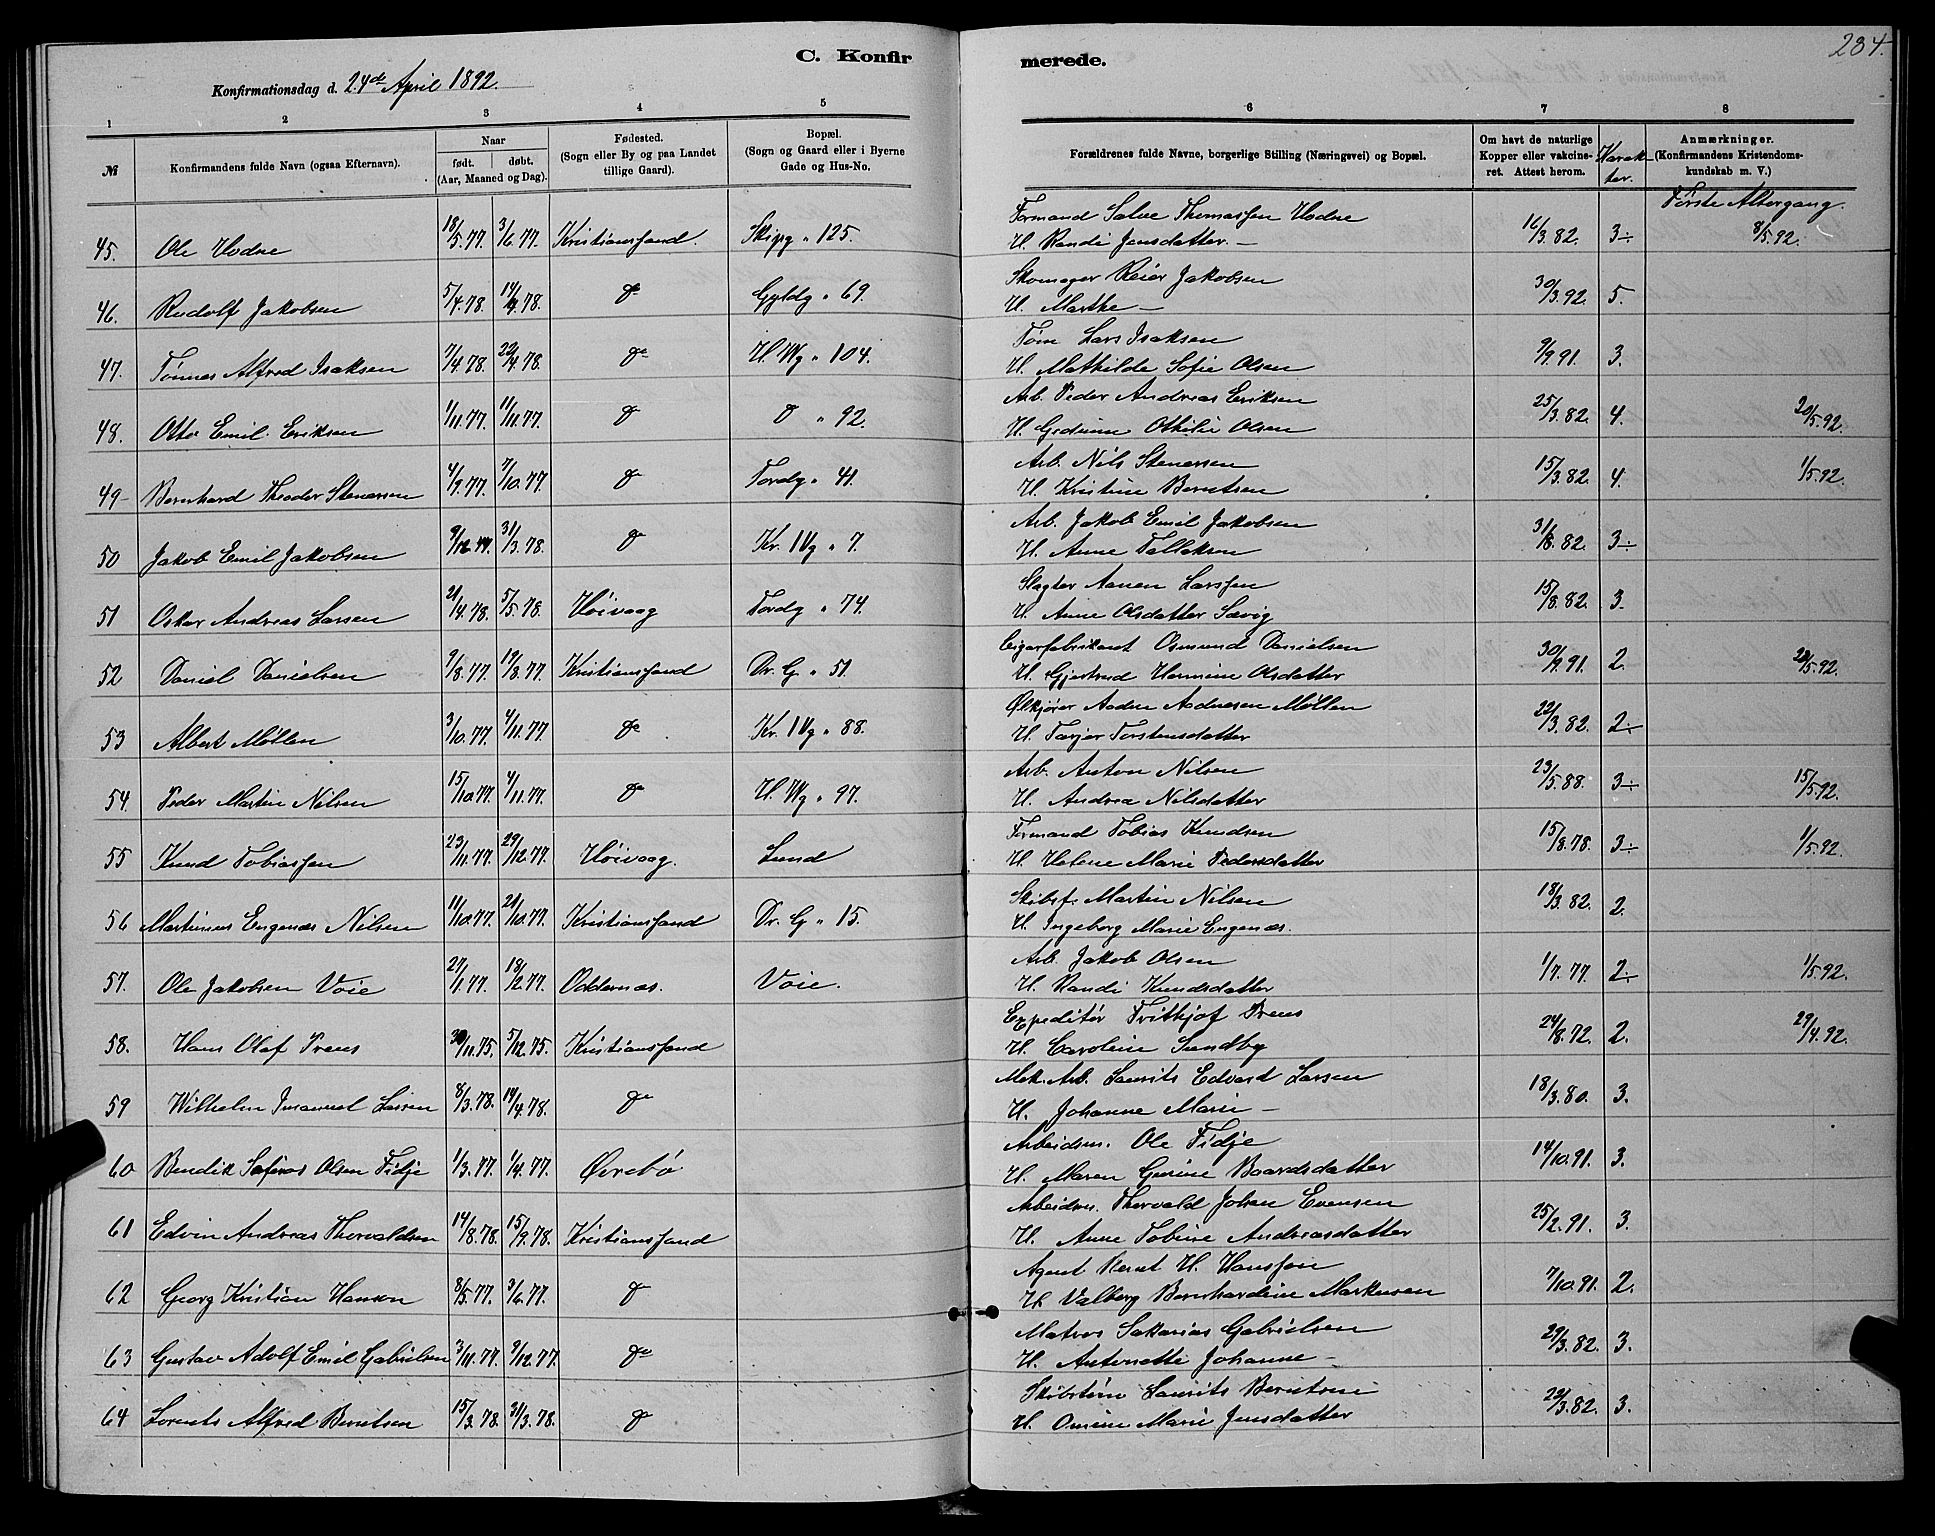 234.
C. Konfirmerede.
Konfirmationsdag d. 24de April 1892.
1 2 3 4 5 6 7 8
№ Konfirmandens fulde Navn (ogsaa Efternavn). Naar født. døbt. (Aar, Maaned og Dag). Fødested. (Sogn eller By og paa Landet tillige Gaard). Bopæl. (Sogn og Gaard eller i Byerne Gade og Hus-No. Forældrenes fulde Navne, borgerlige Stilling (Næringsvei) og Bopæl. Om havt de naturlige Kopper eller vakcineret. Attest herom. Karakter. Anmærkninger. (Konfirmandens Kristendomskundskab m. V.)
Første Altergang.
45. Ole Hodne 18/5.77. 3/6.77. Kristianssand. Skipg " 125. Formand Salve Thomassen Hodne 16/3.82. 3÷ 8/5.92.
H. Randi Jensdatter. —
46. Rudolf Jakobsen 5/4.78. 14/4.78. do Gyldg " 69. Skomager Reier Jakobsen 30/3.92. 5.
H. Marthe —
47. Tønnes Alfred Isaksen 7/4.78. 22/4.78. do H. Wg " 104. Tøm Lars Isaksen 9/9.91. 3.
H. Mathilde Sofie Olsen
48. Otto Emil Eriksen 1/11.77. 11/11.77. do do " 92. Arb. Peder Andreas Eriksen 25/3.82. 4. 20/5.92.
H. Othilie Olsen
49 Bernhard Theodor Stenersen 4/9.77. 7/10.77. do Tordg " 41. Arb. Nils Stenersen 15/3.82. 4. 1/5.92.
H. Kristine Berntsen
50 Jakob Emil Jakobsen 9/12.77. 31/3.78. do Kr. IVg " 7. Arb. Jakob Emil Jakobsen 31/8.82. 3÷
H. Anne Tallaksen
51 Oskar Andreas Larsen 21/4.78. 5/5.78. Høivaag Tordg " 74. Slagter Aanen Larssen 15/8.82. 3.
H. Anne Olsdatter Sævig
52 Daniel Danielsen 9/8.77. 19/8.77. Kristianssand Dr. G " 51. Cigarfabrikant Osmund Danielsen 30/9.91. 2. 22/5.92.
H. Gjertrud Hermine Olsdatter
53 Albert Møllen 3/10.77. 4/11.77. do Kr. IVg " 88. Ølkjører Aadne Aadnesen Møllen 22/3.82. 2÷
H. Tarjer Torstensdatter
54. Peder Martin Nilsen 15/10.77. 4/11.77. do H. Wg " 97. Arb. Anton Nilsen 23/5.88. 3÷ 15/5.92.
H. Andrea Nilsdatter
55 Knud Tobiassen 23/11.77. 29/12.77. Høivaag. Lund Formand Tobias Knudsen 15/8.78. 3÷ 1/5.92.
H. Helene Marie Pedersdatter
56 Martinius Engenæs Nilsen 11/10.77. 21/10.77. Kristianssand Dr. G " 15. Skibsf. Martin Nilsen 18/3.82. 2.
H. Ingeborg Marie Engenæs.
57. Ole Jakobsen Voie 27/1.77. 18/2.77. Oddernæs. Voie. Arb. Jakob Olsen 1/7.77. 2÷ 1/5.92.
H. Randi Knudsdatter
58. Hans Olaf Prens 30/11.75. 5/12.75. Kristianssand Expeditør Frithjof Prens 24/8.72. 2. 29/4.92.
H. Caroline Sundby
59 Wilhelm Imanuel Larsen 8/3.78. 14/4.78. do Mek. Arb. Laurits Edvard Larsen 18/3.80. 3.
H. Johanne Marie —
60 Bendik Sofinus Olsen Fidje 1/3.77. 1/4.77. Øvrebø Arbeidsm. Ole Fidje 14/10.91. 3.
H. Maren Gurine Baardsdatter
61 Edvin Andreas Thorvaldsen 14/8.78. 15/9.78. Kristianssand Arbeidsm. Thorvald Johan Evensen 25/2.91. 3.
H. Anne Tobine Andreasdatter
62 Georg Kristian Hansen 8/5.77. 3/6.77. do Agent Bernt H. Hanssen 7/10.91. 2.
H. Valberg Bernhardine Markusen
63 Gustav Adolf Emil Gabrielsen 3/11.77. 9/12.77. do Matros Sakarias Gabrielsen 29/3.82. 3.
H. Antonette Johanne —
64 Lorents Alfred Berntsen 15/3.78. 31/3.78. do Skibstøm Laurits Berntsen 22/3.82. 3.
H. Omine Marie Jensdatter